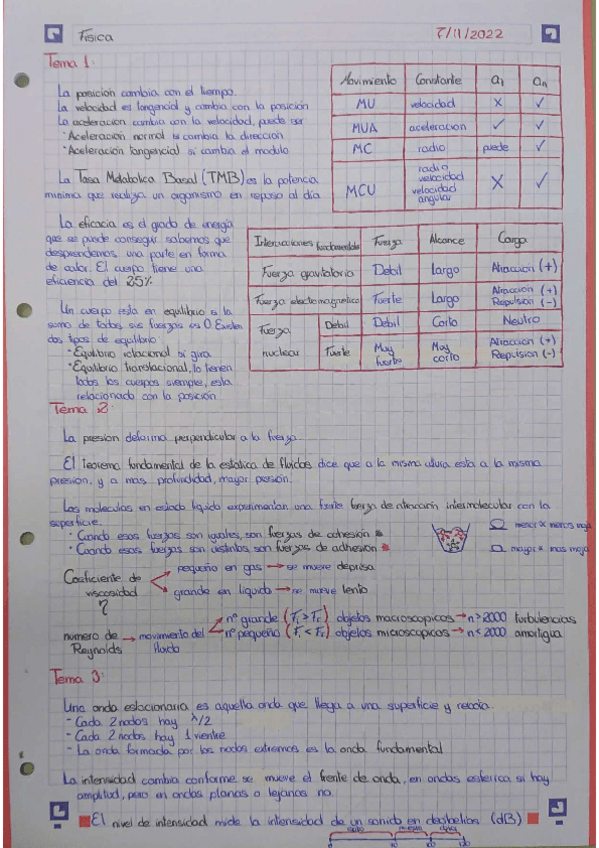 Física
7/11/2022
Tema 1:
La posición cambia con el tiempo.
La velocidad es tangencial y cambia con la posición
La aceleracion cambia con la velocidad, puede ser
· Aceleración normal si cambia la direccion
· Aceleración tangencial si cambia el modulo
La Tasa Metabolica Basal (TMB) es la potencia
minima que realiza un organismo en reposo al día
Movimiento Constante at an
MU velocidad X ✓
MUA aceleracion ✓ ✓
MC radio puede ✓
MCU radio velocidad velocidad angular X ✓
La eficacia es el grado de energía
que se puede conseguir sabemos que
desprendemos una parte en forma
de calor. El cuerpo tiene una
eficiencia del 25%
Un cuerpo esta en equilibrio si la
suma de todas sus fuerzas es 0. Existen
dos tipos de equilibrio:
· Equilibrio rotacional si gira
· Equilibrio translacional, lo tienen
todos los cuerpos siempre, esta
relacionado con la posición
Interacciones fundamentales Fuerza Alcance Carga
Fuerza gravitatoria Debil Largo Atraccion (+)
Fuerza electromagnetica Fuerte Largo Atraccion (+) Repulsion (-)
Fuerza nuclear Debil Debil Corto Neutro
Fuerte Muy fuerte Muy corto Atraccion (+) Repulsion (-)
Tema 2:
La presion deforma perpendicular a la fuerza.
El teorema fundamental de la estatica de fluidos dice que a la misma altura esta a la misma
presion, y a mas profundidad, mayor presión.
Las moleculas en estado liquido experimentan una fuerte fuerza de atracción intermolecular con la
superficie.
· Cuando esas fuerzas son iguales, son fuerzas de adhesión
· Cuando esas fuerzas son distintas son fuerzas de adhesion
menor α menos moja
mayor α mas moja
Coeficiente de viscosidad
pequeño en gas → se mueve deprisa
grande en liquido → se mueve lento
η
numero de Reynolds → movimiento del fluido
nº grande (Fi > Fr) objetos macroscopicos → n > 2000 turbulencias
nº pequeño (Fi < Fr) objetos microscopicos → n < 2000 amortigua
Tema 3:
Una onda estacionaria es aquella onda que llega a una superficie y rebota
- Cada 2 nodos hay λ/2
- Cada 2 nodos hay 1 vientre
- La onda formada por los nodos extremos es la onda fundamental
La intensidad cambia conforme se mueve el frente de onda, en ondas esferica si hay
amplitud, pero en ondas planas o lejanas no.
El nivel de intensidad mide la intensidad de un sonido en decibelios (dB)